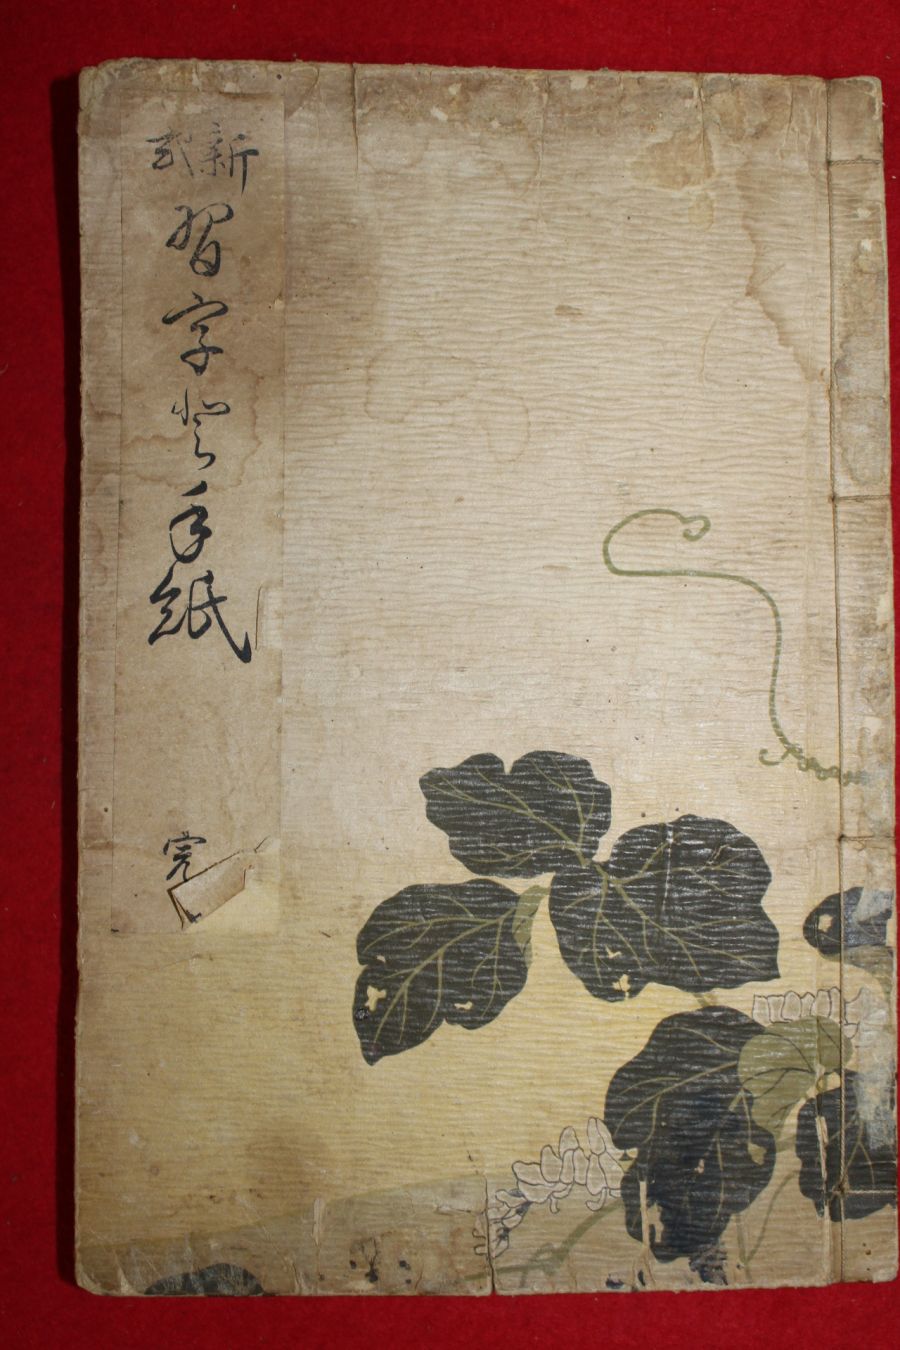 新式
習字と手紙
完